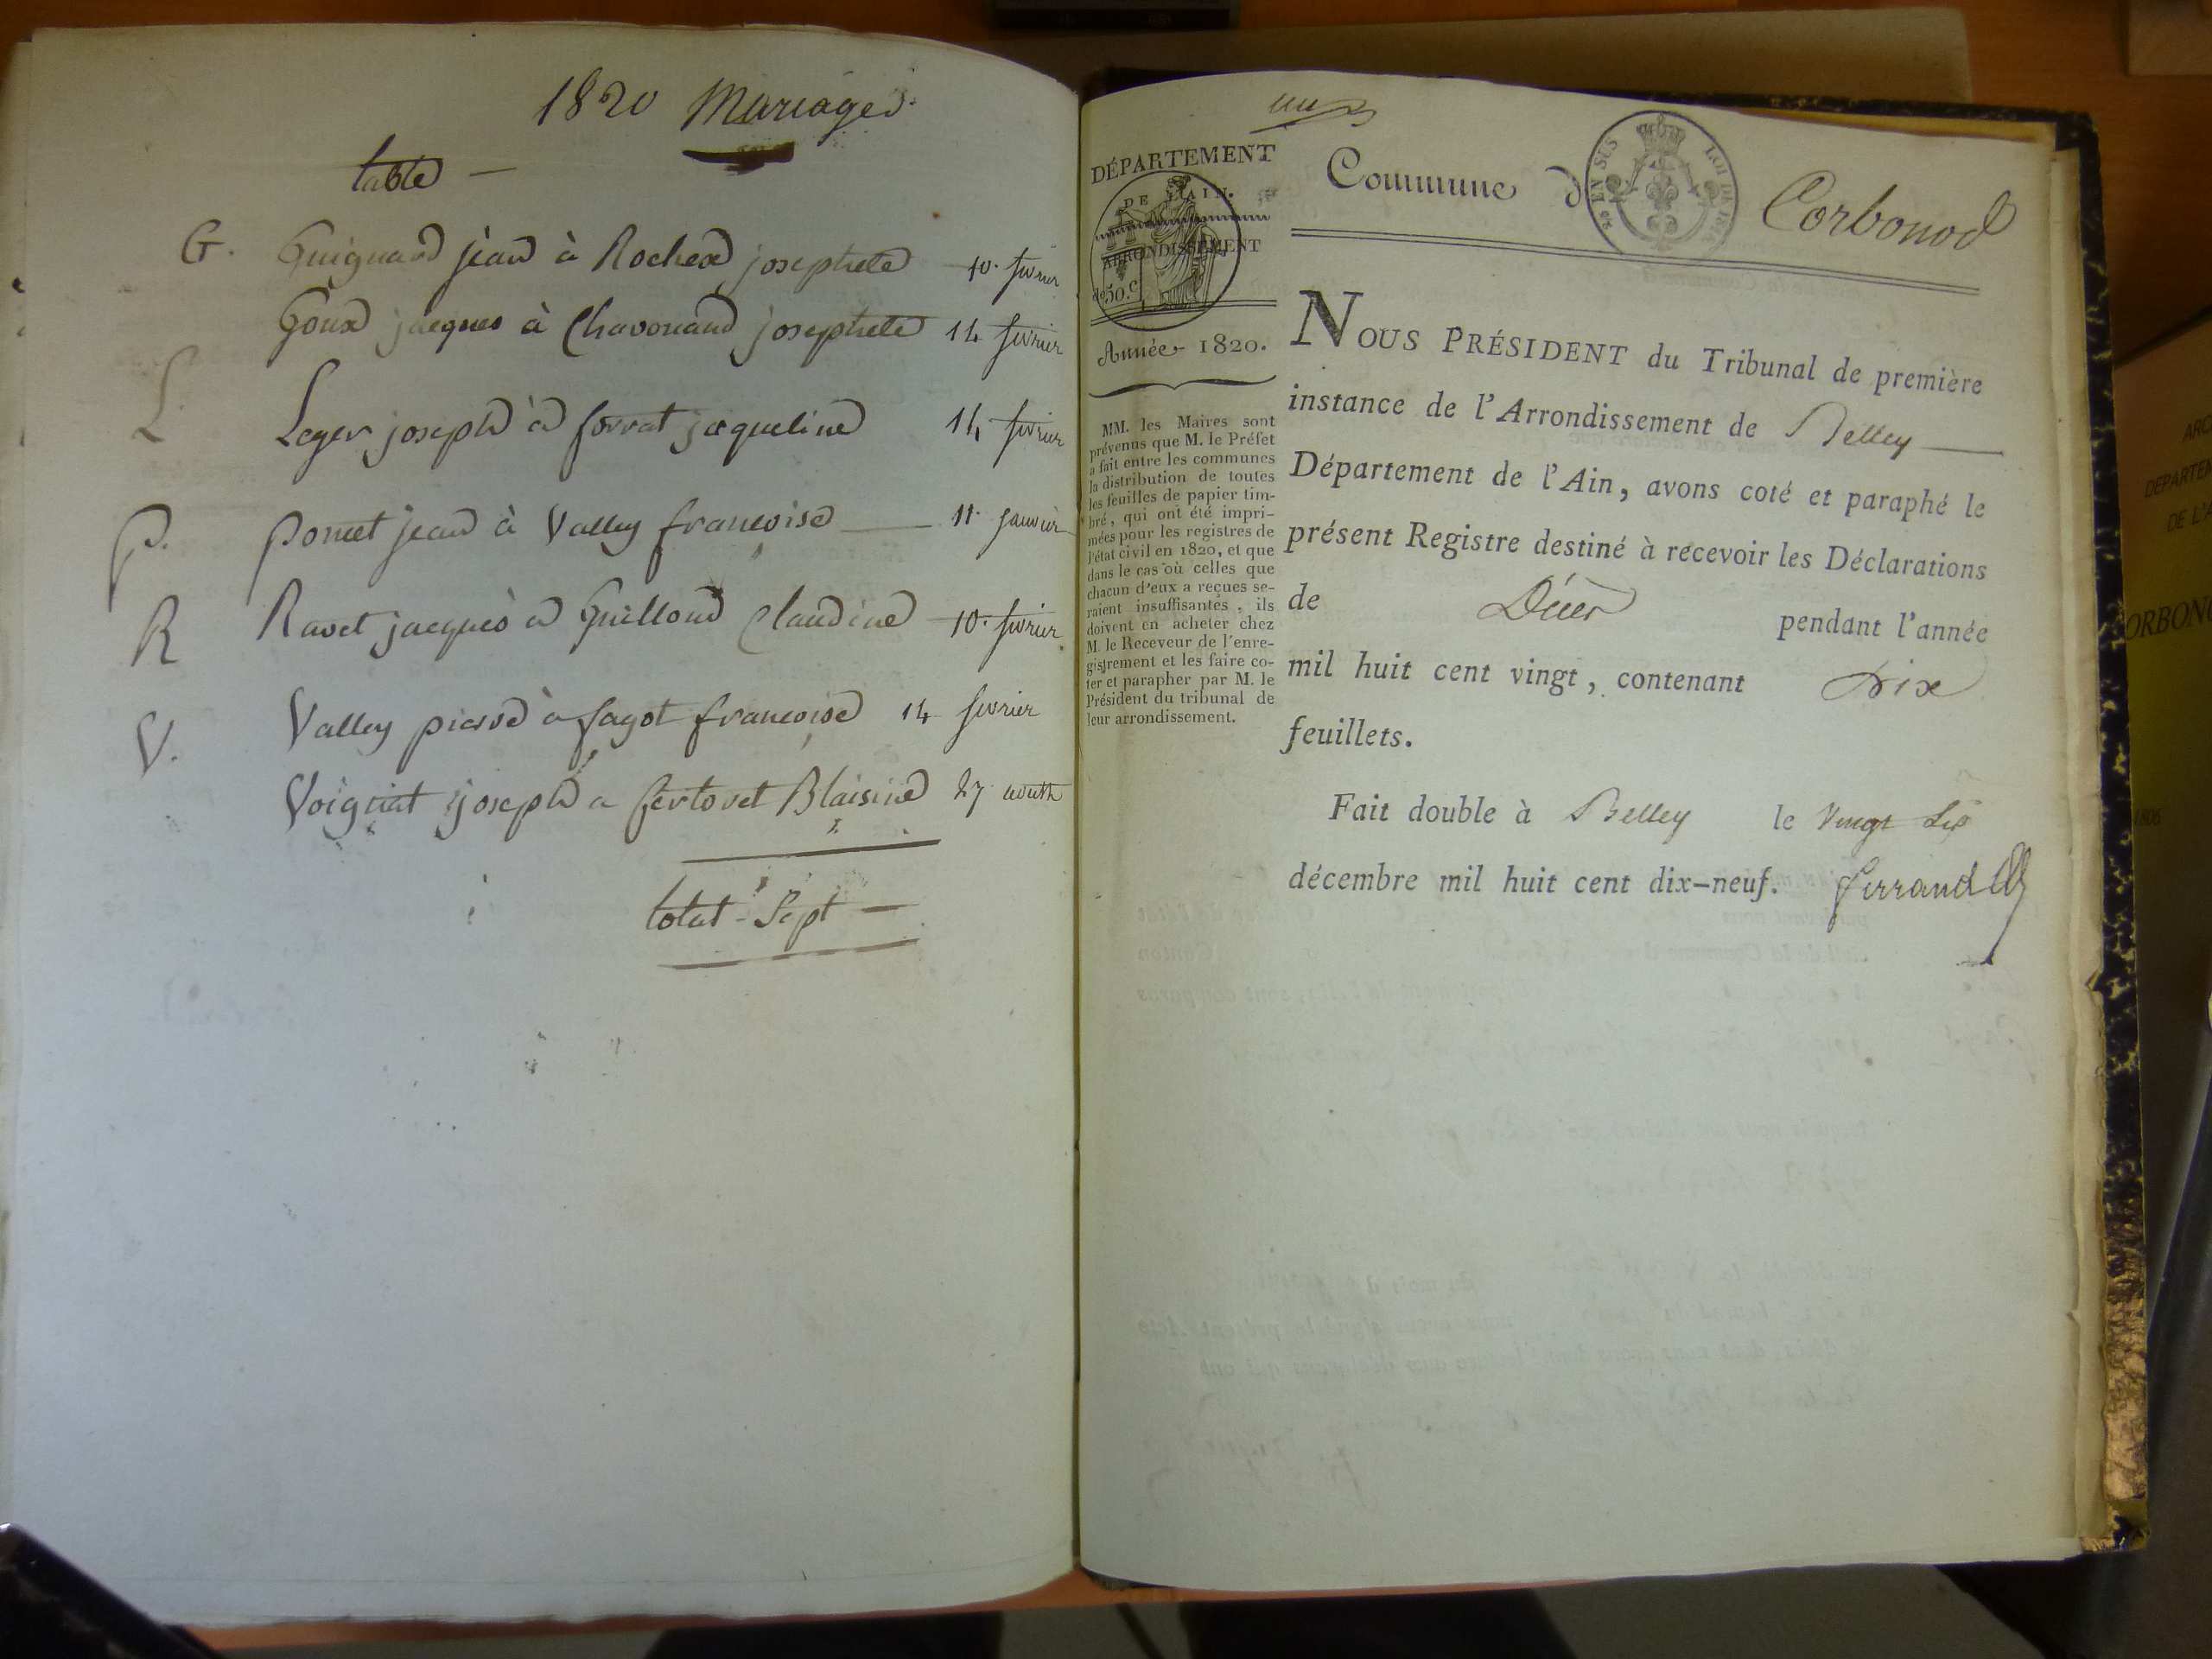 1820 Mariages.
table —
G. Guignard jean à Rochex josephete 10. fevrier
Goux jacques à Chavouand josephete 14 fevrier
L. Leger joseph à forrat jaqueline 14 fevrier
P. poncet jean à Valley francoise 11. janvier
R Ravet jacques à Guilloud Claudine 10. fevrier
V. Valley pierre à fagot francoise 14 fevrier
Voignat joseph a fertoret Blaisine 27 aoust
total - Sept —
DÉPARTEMENT
DE L'AIN.
ARRONDISSEMENT
de 50.c
Année 1820.
MM. les Maires sont
prévenus que M. le Préfet
a fait entre les communes
la distribution de toutes
les feuilles de papier tim-
bré, qui ont été impri-
mées pour les registres de
l'état civil en 1820, et que
dans le cas où celles que
chacun d'eux a reçues se-
raient insuffisantes, ils
doivent en acheter chez
M. le Receveur de l'enre-
gistrement et les faire co-
ter et parapher par M. le
Président du tribunal de
leur arrondissement.
Commune d Corbonod
EN SUS LOI DE
NOUS PRÉSIDENT du Tribunal de première
instance de l'Arrondissement de Belley
Département de l'Ain, avons coté et paraphé le
présent Registre destiné à recevoir les Déclarations
de Décès pendant l'année
mil huit cent vingt, contenant Dix
feuillets.
Fait double à Belley le Vingt Six
décembre mil huit cent dix-neuf. ferrand